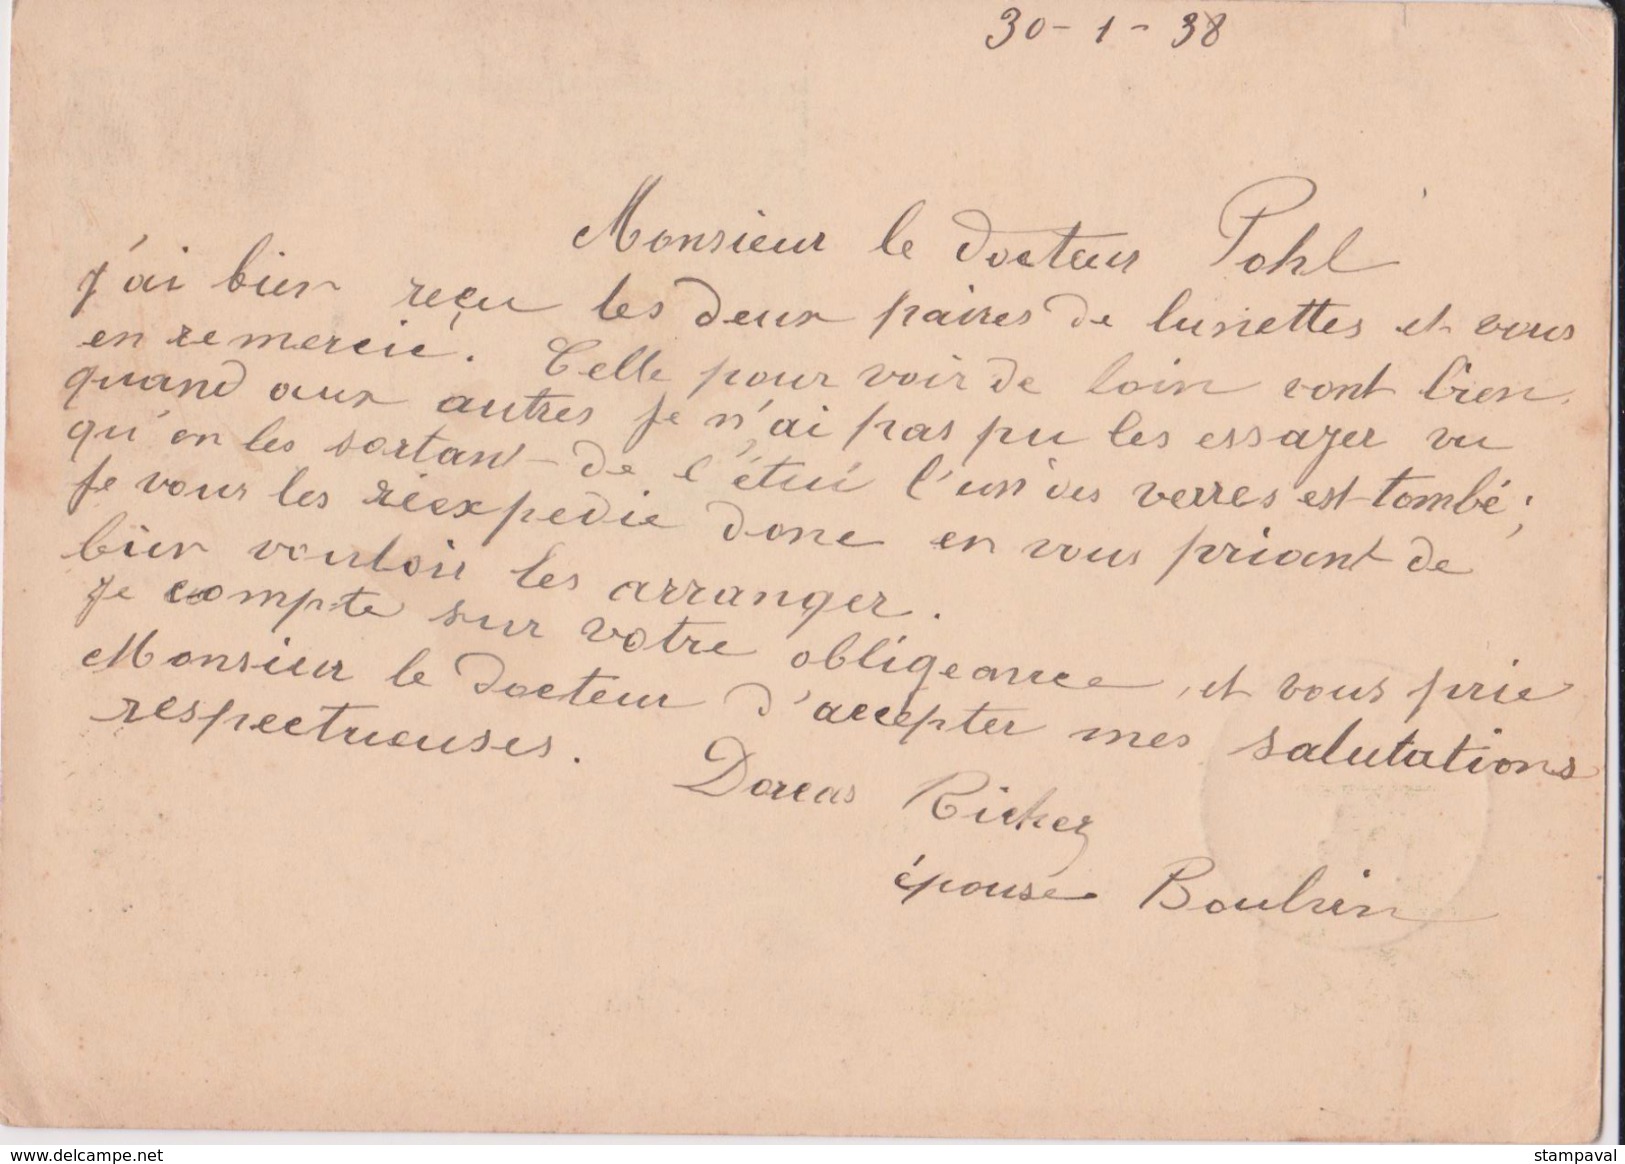 30-1-38
Monsieur le docteur Pohl
j'ai bien reçu les deux paires de lunettes et vous
en remercie. Celle pour voir de loin vont bien,
quand aux autres je n'ai pas pu les essayer vu
qu'en les sortant de l'étui l'un des verres est tombé;
je vous les réexpedie donc en vous priant de
bien vouloir les arranger.
je compte sur votre obligeance, et vous prie
Monsieur le docteur d'accepter mes salutations
respectueuses.
Dorcas Richez
épouse Boulvin
delcampe.net
stampaval